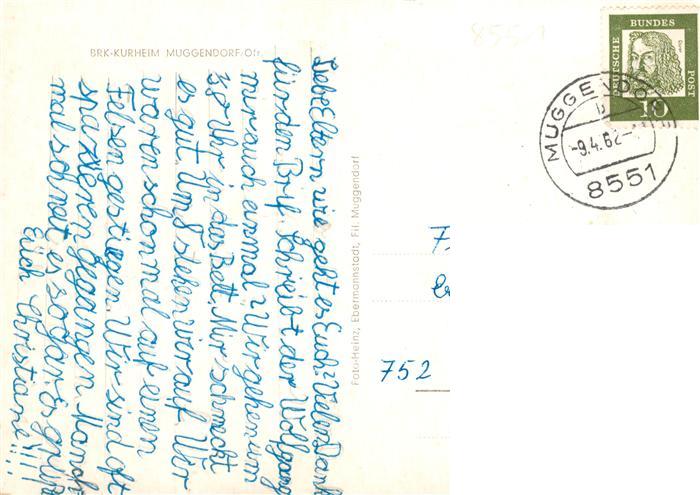 BRK-KURHEIM MUGGENDORF/Ofr.
8551
Liebe Eltern wie geht es Euch? Vielen Dank
für den Brif. Schreibt der Wolfgang
mir auch einmal? Wir gehen um
Uhr in das Bett. Mir schmeckt
es gut. Um 8 stehen wir auf. Wir
waren schon mal auf einen
Felsen gestiegen. Wir sind oft
spazieren gegangen. Manch
mal schneit es sogar. Es grüßt
Euch Christiane!!!
Foto-Heinz, Ebermannstadt, Fil. Muggendorf
DEUTSCHE BUNDES POST
Dürer
10
MUGGENDORF
b
-9.4.62-
8551
752